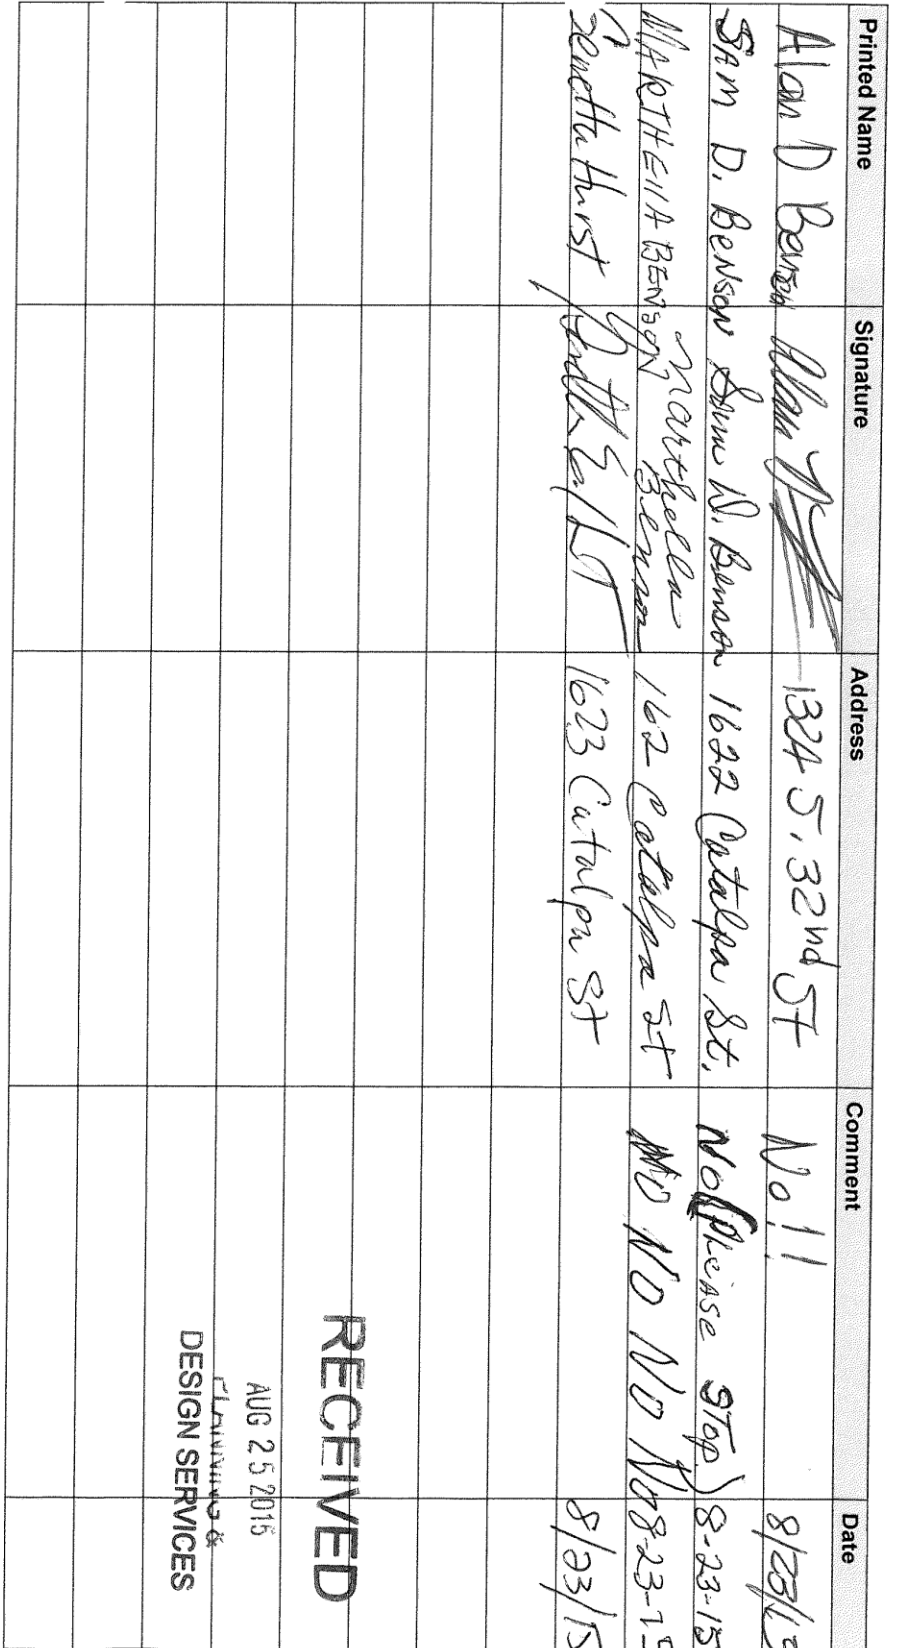 Printed Name Signature Address Comment Date
Alan D Benson Alan 1324 S. 32nd St No!! 8/23/15
SAM D. BENSON Sam D. Benson 1622 Catalpa St. No (Please STop) 8-23-15
MARTHEllA BENSON Marthella Benson 162 Catalpa St NO NO NO No 8-23-15
Genetta Hurst 1623 Catalpa St 8/23/15
RECEIVED
AUG 25 2015
PLANNING &
DESIGN SERVICES